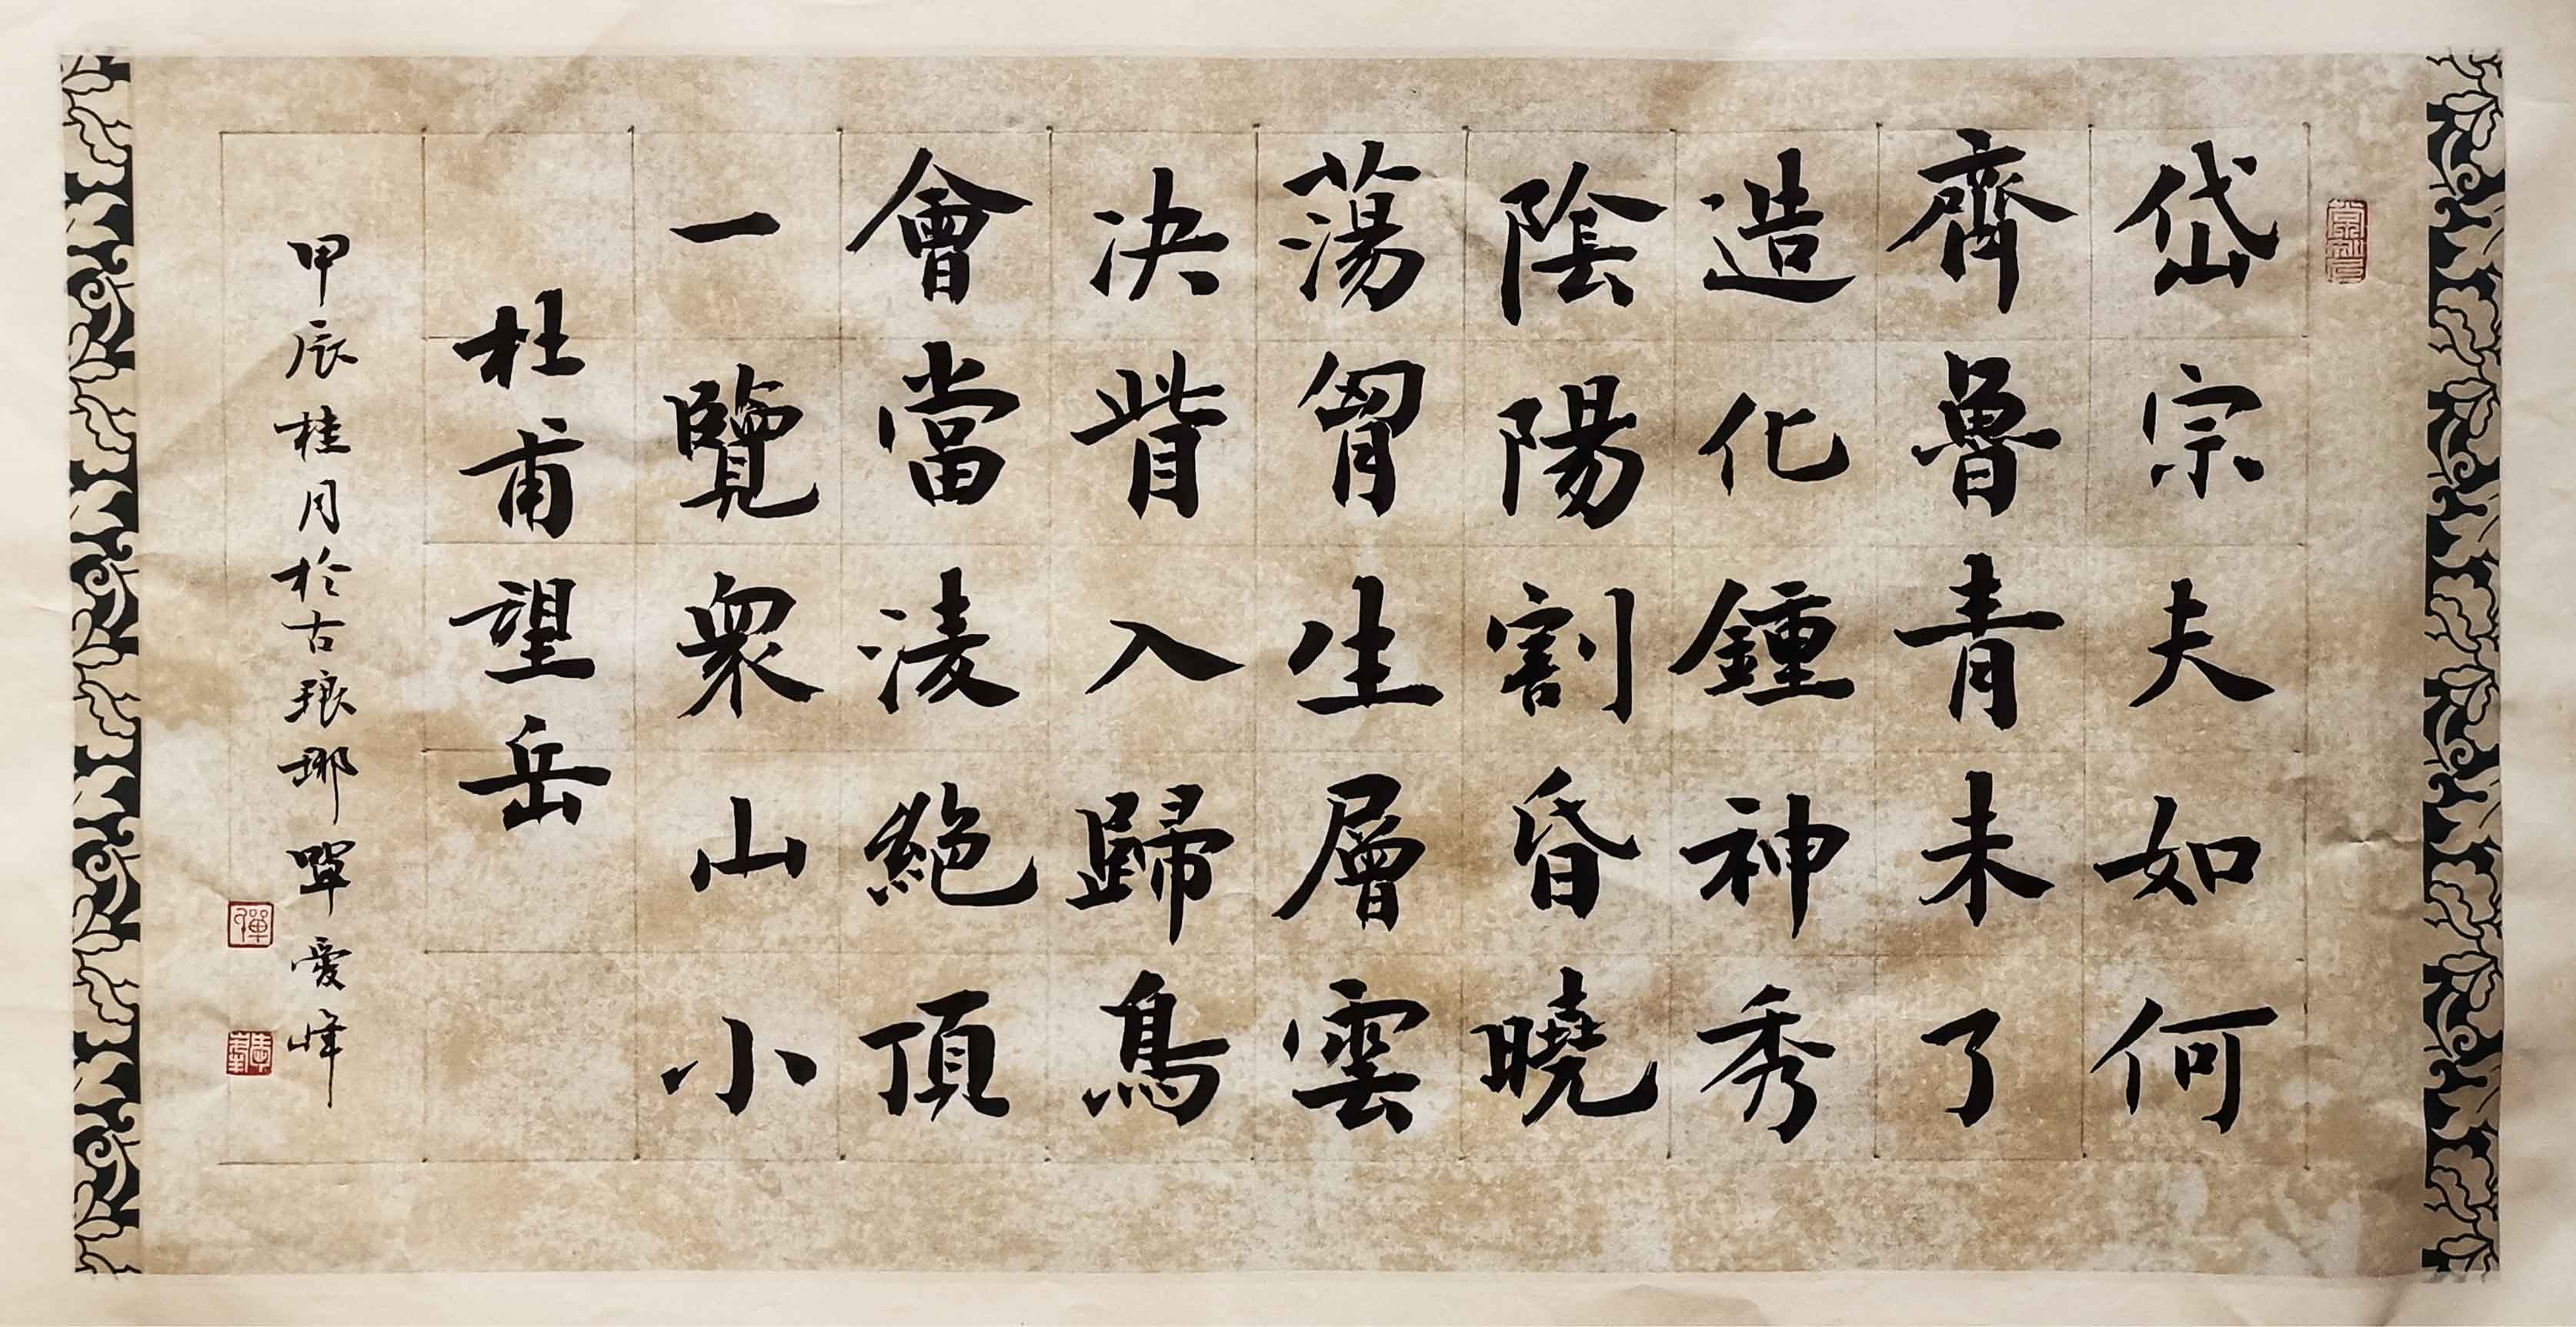 岱宗夫如何
齊魯青未了
造化鍾神秀
陰陽割昏曉
蕩胷生層雲
决眥入歸鳥
會當凌絕頂
一覽衆山小
杜甫望岳
甲辰桂月於古琅琊單愛峰